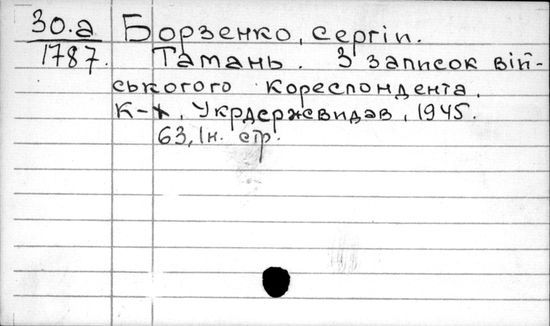 30.а Борзенко, Сергій.
1787. Тамань. З записок вій-
ського кореспондента.
К-Х, Укрдержвидав, 1945.
63, Iн. стр.